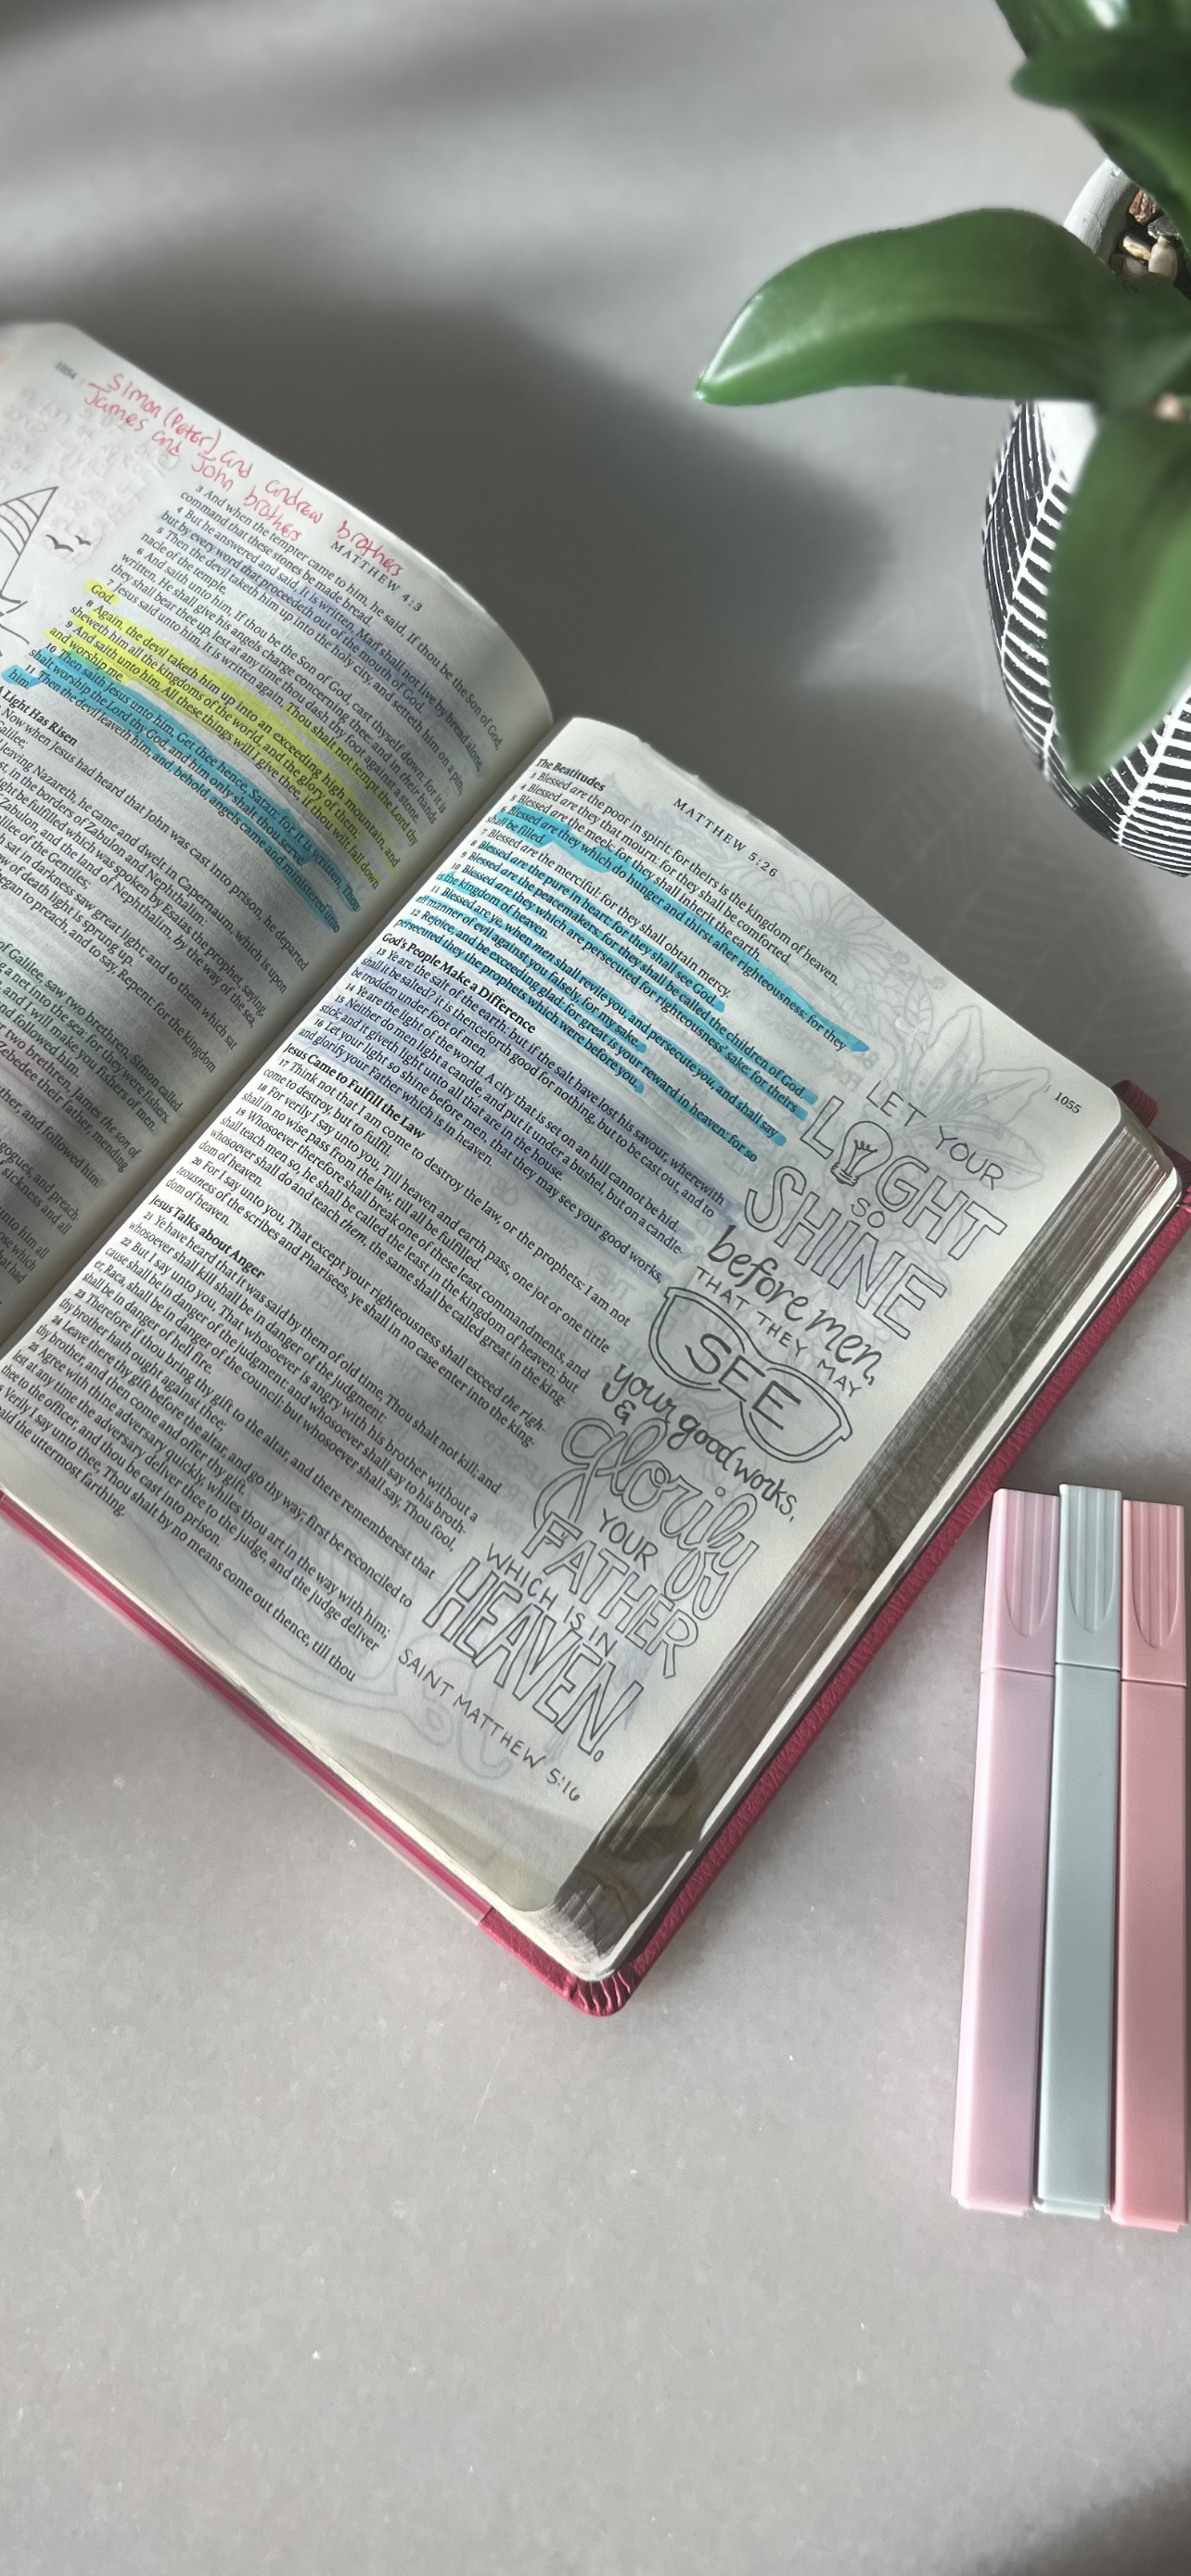 1054
Simon (Peter) and andrew brothers
James and John brothers
MATTHEW 4:3
3 And when the tempter came to him, he said, If thou be the Son of God,
command that these stones be made bread.
4 But he answered and said, It is written, Man shall not live by bread alone,
but by every word that proceedeth out of the mouth of God.
5 Then the devil taketh him up into the holy city, and setteth him on a pin-
nacle of the temple,
6 And saith unto him, If thou be the Son of God, cast thyself down: for it is
written, He shall give his angels charge concerning thee: and in their hands
they shall bear thee up, lest at any time thou dash thy foot against a stone.
7 Jesus said unto him, It is written again, Thou shalt not tempt the Lord thy
God.
8 Again, the devil taketh him up into an exceeding high mountain, and
sheweth him all the kingdoms of the world, and the glory of them;
9 And saith unto him, All these things will I give thee, if thou wilt fall down
and worship me.
10 Then saith Jesus unto him, Get thee hence, Satan: for it is written, Thou
shalt worship the Lord thy God, and him only shalt thou serve.
11 Then the devil leaveth him, and, behold, angels came and ministered unto
him.
Light Has Risen
Now when Jesus had heard that John was cast into prison, he departed
Galilee;
leaving Nazareth, he came and dwelt in Capernaum, which is upon
in the borders of Zabulon and Nephthalim:
might be fulfilled which was spoken by Esaias the prophet, saying,
Zabulon, and the land of Nephthalim, by the way of the sea,
Galilee of the Gentiles;
sat in darkness saw great light; and to them which sat
of death light is sprung up.
began to preach, and to say, Repent: for the kingdom
of Galilee, saw two brethren, Simon called
a net into the sea: for they were fishers.
and I will make you fishers of men.
and followed him.
two brethren, James the son of
Zebedee their father, mending
and followed him.
and preach-
sickness and all
unto him all
MATTHEW 5:26
1055
The Beatitudes
3 Blessed are the poor in spirit: for theirs is the kingdom of heaven.
4 Blessed are they that mourn: for they shall be comforted.
5 Blessed are the meek: for they shall inherit the earth.
6 Blessed are they which do hunger and thirst after righteousness: for they
shall be filled.
7 Blessed are the merciful: for they shall obtain mercy.
8 Blessed are the pure in heart: for they shall see God.
9 Blessed are the peacemakers: for they shall be called the children of God.
10 Blessed are they which are persecuted for righteousness' sake: for theirs
is the kingdom of heaven.
11 Blessed are ye, when men shall revile you, and persecute you, and shall say
all manner of evil against you falsely, for my sake.
12 Rejoice, and be exceeding glad: for great is your reward in heaven: for so
persecuted they the prophets which were before you.
God's People Make a Difference
13 Ye are the salt of the earth: but if the salt have lost his savour, wherewith
shall it be salted? it is thenceforth good for nothing, but to be cast out, and to
be trodden under foot of men.
14 Ye are the light of the world. A city that is set on an hill cannot be hid.
15 Neither do men light a candle, and put it under a bushel, but on a candle-
stick; and it giveth light unto all that are in the house.
16 Let your light so shine before men, that they may see your good works,
and glorify your Father which is in heaven.
Jesus Came to Fulfill the Law
17 Think not that I am come to destroy the law, or the prophets: I am not
come to destroy, but to fulfil.
18 For verily I say unto you, Till heaven and earth pass, one jot or one tittle
shall in no wise pass from the law, till all be fulfilled.
19 Whosoever therefore shall break one of these least commandments, and
shall teach men so, he shall be called the least in the kingdom of heaven: but
whosoever shall do and teach them, the same shall be called great in the king-
dom of heaven.
20 For I say unto you, That except your righteousness shall exceed the righ-
teousness of the scribes and Pharisees, ye shall in no case enter into the king-
dom of heaven.
Jesus Talks about Anger
21 Ye have heard that it was said by them of old time, Thou shalt not kill; and
whosoever shall kill shall be in danger of the judgment:
22 But I say unto you, That whosoever is angry with his brother without a
cause shall be in danger of the judgment: and whosoever shall say to his broth-
er, Raca, shall be in danger of the council: but whosoever shall say, Thou fool,
shall be in danger of hell fire.
23 Therefore if thou bring thy gift to the altar, and there rememberest that
thy brother hath ought against thee;
24 Leave there thy gift before the altar, and go thy way; first be reconciled to
thy brother, and then come and offer thy gift.
25 Agree with thine adversary quickly, whiles thou art in the way with him;
lest at any time the adversary deliver thee to the judge, and the judge deliver
thee to the officer, and thou be cast into prison.
Verily I say unto thee, Thou shalt by no means come out thence, till thou
paid the uttermost farthing.
LET YOUR
LIGHT
SO
SHINE
before men,
THAT THEY MAY
SEE
your good works,
&
glorify
YOUR
FATHER
WHICH IS IN
HEAVEN.
SAINT MATTHEW 5:16